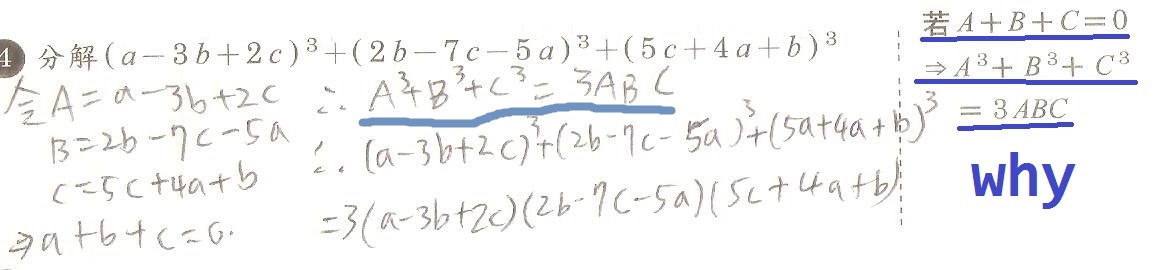 4 分解(a-3b+2c)³+(2b-7c-5a)³+(5c+4a+b)³
令A=a-3b+2c
B=2b-7c-5a
c=5c+4a+b
⇒a+b+c=0.
∴ A³+B³+C³=3ABC
∴ (a-3b+2c)³+(2b-7c-5a)³+(5a+4a+b)³
=3(a-3b+2c)(2b-7c-5a)(5c+4a+b)
若A+B+C=0
⇒A³+B³+C³
=3ABC
why